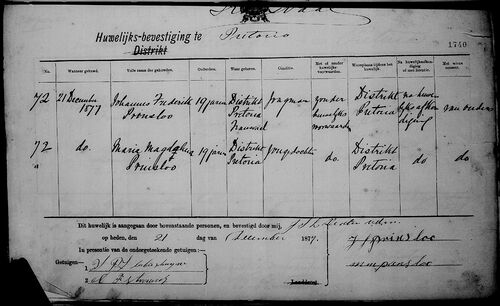 Huwelijks-bevestiging te Pretoria
Distrikt
1740
No. Wanneer gehuwd. Volle namen der gehuwden. Ouderdom. Waar geboren. Conditie. Met of zonder huwelijks-voorwaarden. Woonplaats tijdens het huwelijk. Na huwelijksafkondiging of met licentie. Met wiens consent.
72 21 December 1877 Johannes Frederik Prinsloo 19 jaren Distrikt Pretoria Transvaal Jongman zonder huwelijks voorwaarden Distrikt Pretoria na huwelijks afkondiging van ouders
72 do. Maria Magdalena Prinsloo 19 jaren Distrikt Pretoria Jongedochter do. Distrikt Pretoria do do
Dit huwelijk is aangegaan door bovenstaande personen, en bevestigd door mij,
op heden, den 21 dag van December 1877. J F prinsloo
In presentie van de ondergeteekende getuigen:
Getuigen— 1
2
Landdrost